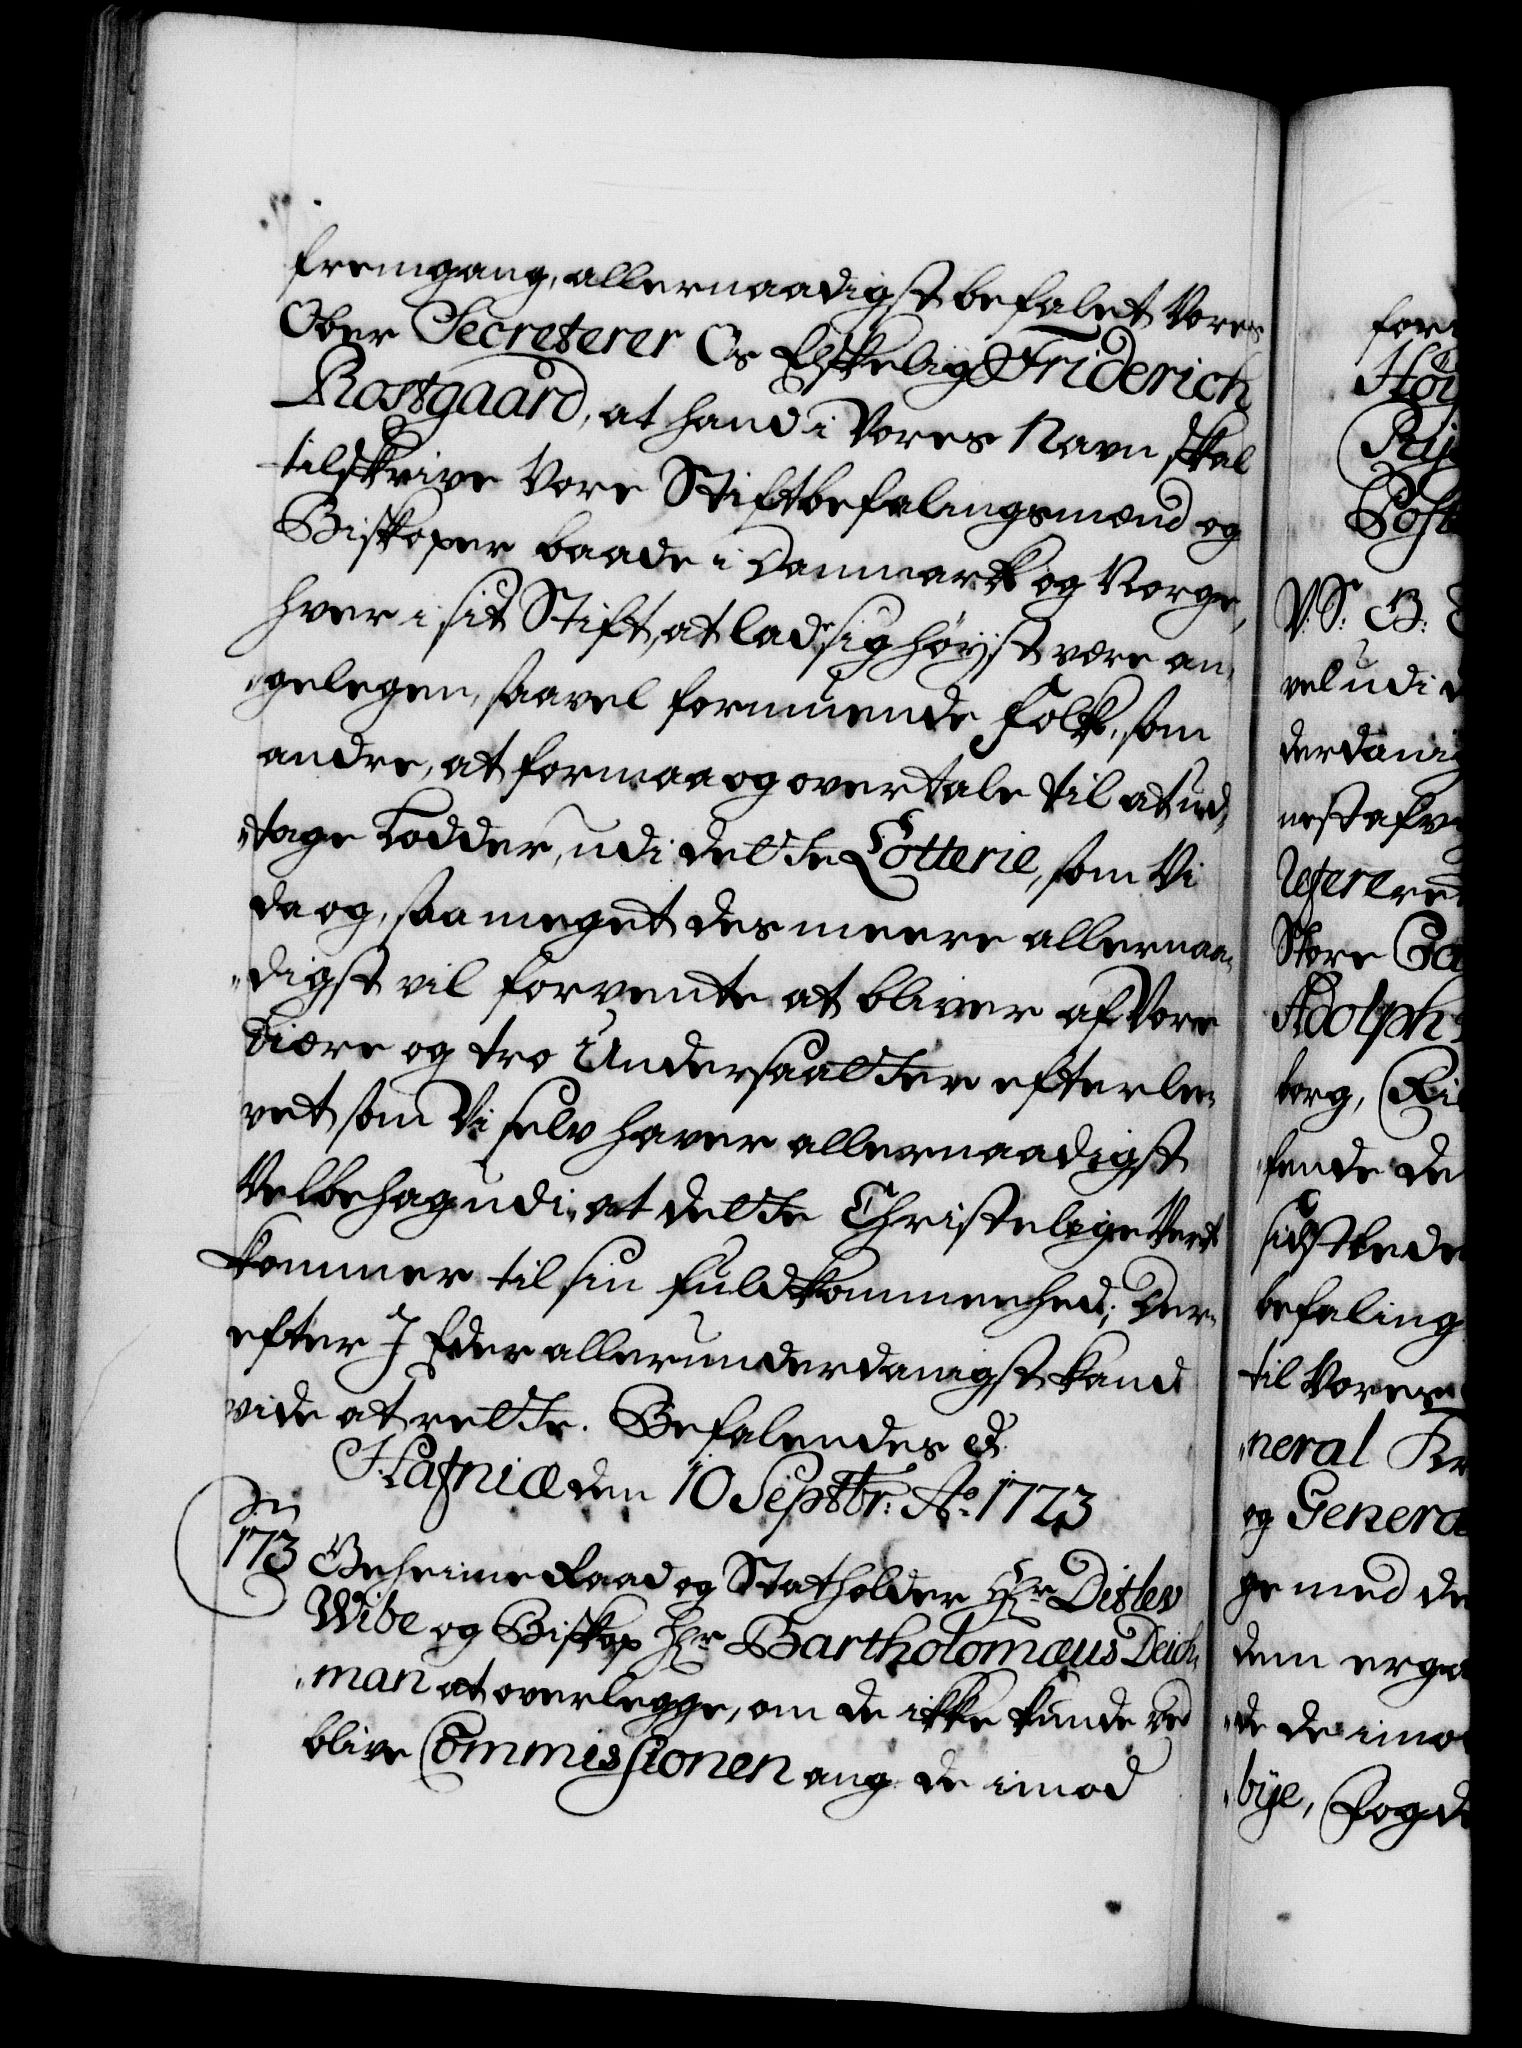 fremgang, allernaadigst befalet Vores
Ober Secreterer Os Elskelig Friderich
Rostgaard, at hand i Vores Navn skal
tilskrive Vore Stiftbefalingsmænd og
Biskoper baade i Danmark og Norge,
hver i sit Stift, at lade sig høyst være an-
"gelegen, saavel formuende Folk, som
andre, at formaa og overtale til at ud-
"tage Lodder, udi dette Lotterie, som Vi
da og, saa meget des meere allernaa-
"digst vil forvente at bliver af Vore
kiære og tro Undersaatter efterle-
vet som Vi selv haver allernaadigst
Velbehag udi, at dette Christelige Verk
kommer til sin fuldkommenhed; Der-
efter I Eder allerunderdanigst kand
vide at rette. Befalendes &.
Hafniæ den 10 Septbr: Ao. 1723
173
Geheime Raad og Statholder Hr Ditlev
Wibe og Biskop Hr Bartholomæus Deich-
"man at overlegge, om de ikke kunde ved
blive Commissionen ang. de imod
for
Høy
Rij
Post
V. S. G:
vel udi
derdanig
nest afv
Refere
Store
Adolph
borg, Ri
"fende de
sidst
befaling
til Vores
"neral Kr
og Genera
ge med de
dem erga
"de de imo
"bÿe, Fogd